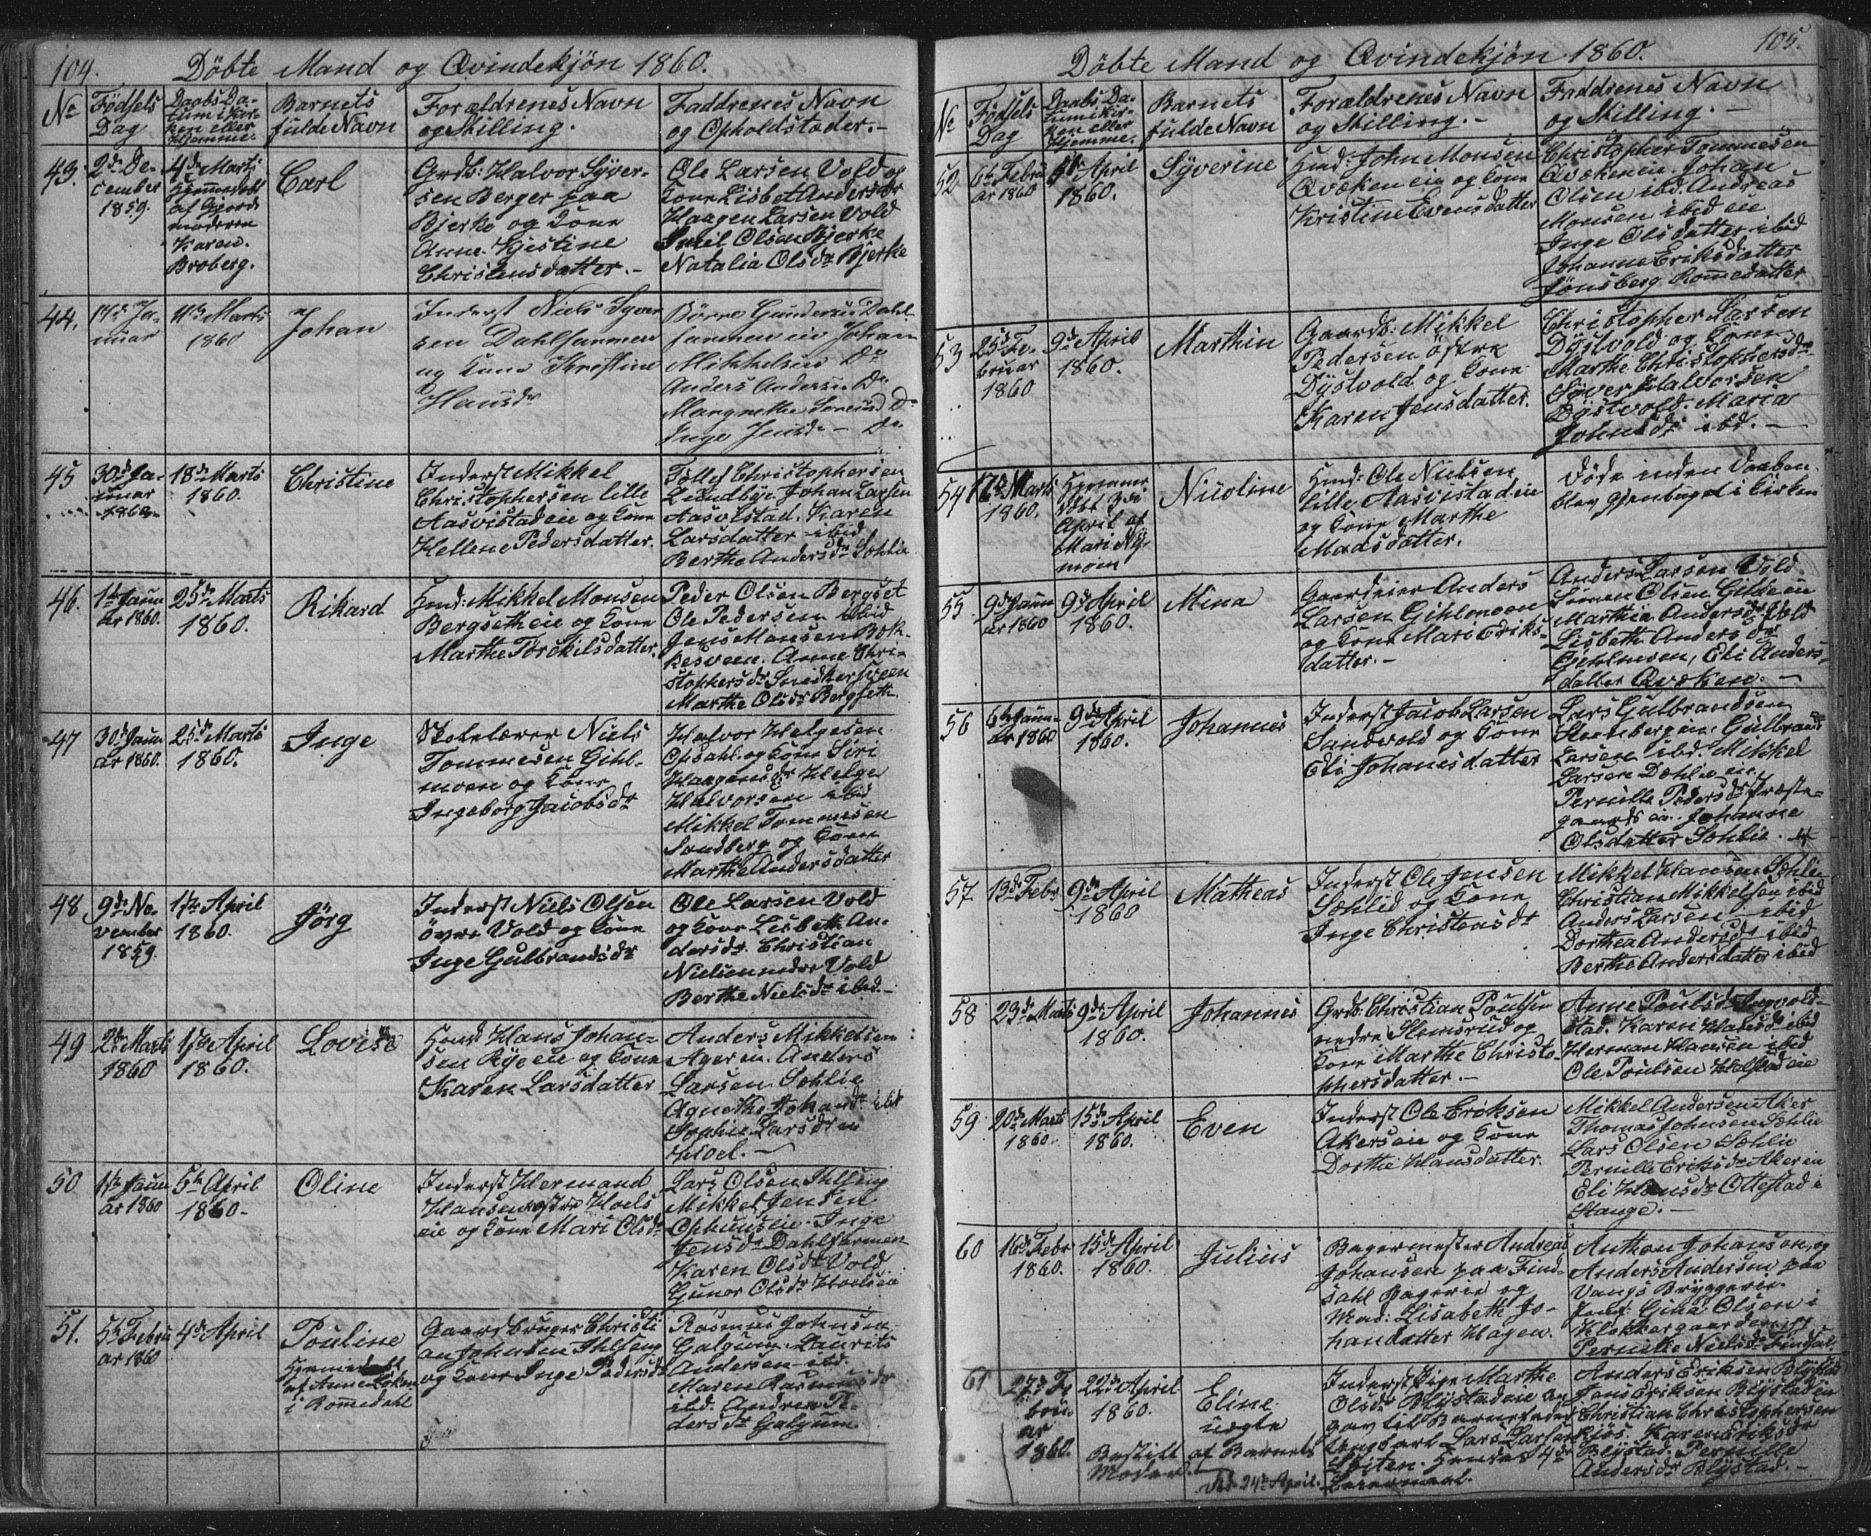 104.
Döbte Mand og Qvindekjön 1860.
No
Födsels
Dag
Daabs Da-
tum i Kir-
ken eller
Hjemme.
Barnets
fulde Navn
Forældrenes Navn
og Stilling.
Faddrenes Navn
og Opholdstæder.-
43.
2de De-
cember
1859.
4de Marts
Hjemmedöbt
af Gjord-
moderen
Karen
Broberg.
Carl
Grdb: Halvor Syver-
sen Berger paa
Bjerke og Kone
Anne Kjestine
Christensdatter.-
Ole Larsen Vold og
Kone Lisbet Andersdr
Haagen Larsen Vold
Emil Olsen Bjerke
Natalia Olsdr Bjerke
44.
17de Ja-
nuar
11te Marts
1860
Johan
Inderst Niels Syver
sen Dahlfarmen
og Kone Kjrestine
Hansdr
Börre Gunderus Dahl-
farmen eie Johan
Mikkelsen Do
Anders Andersen Do
Margrethe Do
Inge Jensdr - Do
45
30de Ja-
nuar
1860
18de Marts
1860.
Christine
Inderst Mikkel
Christophersen lille
Aasvistadeie og Kone
Hellene Pedersdatter.
Tollef Christophersen
Lundbye. Johan Larsen
Aasvistad. Karen
Larsdatter ibid
Berthe Andersdr Sohlie
46.
1ste Janu
ar 1860.
25de Marts
1860.
Rikard
Husd: Mikkel Monsen
Bergsetheie og Kone
Marthe Torkilsdatter.
Peder Olsen Bergset
Ole Pedersen ibid
Jens Monsen Bok-
besveen. Anne Chri-
stophersdr Snidkersveen
Marthe Olsdr Bergseth.
47
30de Janu
ar 1860.
25de Marts
1860.
Inge
Skolelærer Niels
Tommesen Gihl-
moen og Kone
Ingeborg Jacobsdr
Halvor Helgesen
Opsahl og Kone Siri
Haagensdr Helge
Halvorsen ibid
Mikkel Tommesen
Sandberg og Kone
Marthe Andersdatter
48
9de No-
vember
1859.
1ste April
1860.
Jörg
Inderst Niels Olsen
övre Vold og Kone
Inge Gulbrandsdr
Ole Larsen Vold
og Kone Lisbeth An-
dersdr. Christian
Nielsen nedre Vold
Berthe Nielsdr ibid.-
49
2de Marts
1860
1ste April
1860.
Lovise
Husd: Hans Johan-
sen Ryeeie og Kone
Karen Larsdatter
Anders Mikkelsen
Ager eie. Anders
Larsen Sohlie
Agnethe Johansdr ibid
Sophie Larsdr
Hoel.-
50
1ste Janu
ar 1860
5te April
1860.-
Oline
Inderst Hermand
Hansen östre Hoels
eie og Kone Mari Olsdr
Lars Olsen Ihlseng
Mikkel Jensen
Ophuuseie. Inge
Jensdr Dahlfarmen
Karen Olsdr Vold
Gunor Olsdr Hoelseie
51.
5te Febru
ar 1860
4de April
Pouline
Hjemmedöbt
af Anne Löken
i Romedahl
Gaardbruger Christi
an Johnsen Ihlseng
og Kone Inge Pedersdr
Rasmus Johnsen
Galgum. Laurits
Andersen ibd.
Maren Rasmusdr
ibd. Andrea Pe-
dersdr Galgum
105.
Döbte Mand og Qvindekjön 1860.
No
Födsels
Dag
Daabs Da-
tum i Kir-
ken eller
Hjemme.
Barnets
fulde Navn
Forældrenes Navn
og Stilling.-
Faddrenes Navn
og Stilling.-
52
6te Febru
ar 1860
April
1860.
Syverine
Husd: John Monsen
Qvækeneie og Kone
Kristine Evensdatter
Christopher Tommesen
Qvækeneie. Johan
Olsen ibd. Andreas
Monsen ibid eie
Inge Olsdatter ibid
Johanne Eriksdatter
Jönsberg
53
25de Fe-
bruar
1860
9de April
1860.
Marthin
Gaardb: Mikkel
Pedersen östre
Dystvold og Kone
Karen Jensdatter.
Christopher Larsen
Dystvold og Kone
Marthe Christophersdr
Syver Halvorsen
Dystvold. Maria
Johnsdr ibd.-
54
12te Marts
1860.
Hjemme
döbt 3de
April af
Mari Ny-
moen
Nicoline
Husd: Ole Nielsen
lille Aasvistadeie
og Kone Marthe
Madsdatter.
Döde inden Daaben
blev gjentaget i Kirken
55.
9de Janu
ar 1860
9de April
1860.
Mina
Gaardeier Anders
Larsen Gihlmoen
og Kone Mari Eriks-
datter.-
Anders Larsen Vold
Simen Olsen Gildeeie
Marthia Andersdr Vold
Lisbeth Andersdr
Gjehlmoen, Eli Anders-
datter Qvæken.-
56
6te Janu-
ar 1860
9de April
1860.
Johannes
Inderst Jacob Larsen
Sundvold og Kone
Eli Johanesdatter
Lars Gulbrandsen
Steenbergeie. Gulbrand
Larsen ibd. Mikkel
Larsen Dæhlie eie
Pernille Pedersdr Præste-
gaards eie. Johanne
Olsdatter Sohlie.
57
13de Febr
9de April
1860
Matheas
Inderst Ole Jensen
Sæhlid og Kone
Inge Christensdr
Mikkel Hansen Sohlie
Christian Mikkelsen ibid
Anders Larsen ibid
Dorthea Andersdr ibid
Berthe Andersdatter ibid
58
23de Marts
9de April
1860.
Johannes
Grdb: Christian Poulsen
nedre Slemsrud og
Kone Marthe Christo-
phersdatter.-
Anne Poulsdr Ingvold-
stad. Karen Hansdr ibid
Herman Hansen ibid
Ole Poulsen Halstadeie
59
20de Marts
1860.
15de April
1860.
Even
Inderst Ole Eriksen
Akerseie og Kone
Dorthe Hansdatter.
Mikkel Andersen Aker
Thomas Johnsen Sohlie
Lars Olsen Sæhlie
Pernille Eriksdr Akereie
Eli Hansdr Ottestad i
Stange.-
60
16de Febr
1860.
15de April
1860.
Julius
Bagermester Andreas
Johansen paa Find-
sahl Bageri og
Mad: Lisabeth Jo-
handatter Hagen.
Anthon Johanson, og
Anders Andersen paa
Vangs Bryggerie.
Jmf: Gina Olsen i
Klokkergaarden og
Pernille Nielsdr Findsal.
61
27de Fe
bru-
ar
1860.
22de April
1860.
Bestilt
Moder
Eline
uægte
af Barnets
Död 24de April.
Inderst Pige Marthe
Olsdr Blystadeie an
gav til Barnefader
Ungkarl Lars Larsen
Löiten. Hendes 4de
Leiermaal.
Anders Eriksen Blystad
Jens Eriksen Blystadeie
Christian Christophersen
Kjös. Karen Eriksdr
Blystad. Pernille
Andersdr Blystad.-